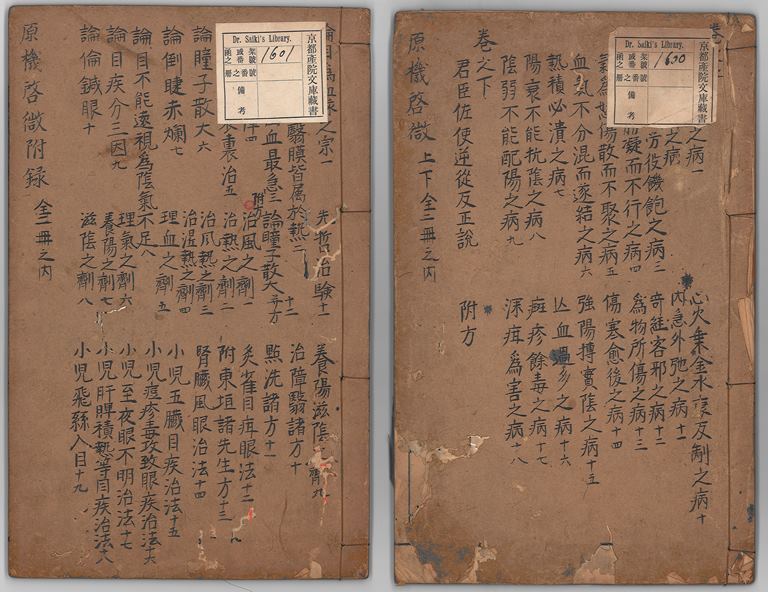 Dr. Saiki's Library.
京都產院文庫藏書
1600
備考
之病一
之病
役饑飽之病三
凝而不行之病四
氣為怒傷散而不聚之病五
血氣不分混而遂結之病六
熱積必潰之病七
陽衰不能抗陰之病八
陰弱不能配陽之病九
心火乗金水衰反制之病十
內急外弛之病十一
奇経客邪之病十二
為物所傷之病十三
傷寒愈後之病十四
強陽搏實陰之病十五
亡血過多之病十六
斑疹餘毒之病十七
深疳為害之病十八
卷之下
君臣佐使逆從反正說
附方
原機啓微 上下全二冊之內
Dr. Saiki's Library.
京都產院文庫藏書
1601
備考
論目為血衣之宗一
翳膜皆属於熱二
血最急三
四
裏治五
論瞳子散大六
論倒睫赤爛七
論目不能遠視為陰氣不足八
論目疾分三因九
論偷鍼眼十
先哲治驗十一
論瞳子散大并方十二
附方
治風之劑一
治熱之劑二
治風熱之劑三
治湿熱之劑四
理血之劑五
理氣之劑六
養陽之劑七
滋陰之劑八
養陽滋陰劑九
治障翳諸方十
點洗諸方十一
灸雀目疳眼法十二
附東垣諸先生方十三
腎臓風眼治法十四
小児五臓目疾治法十五
小児痘疹毒攻致眼疾治法十六
小児至夜眼不明治法十七
小児肝脾積熱等目疾治法十八
小児飛絲入目十九
原機啓微附録 全二冊之內